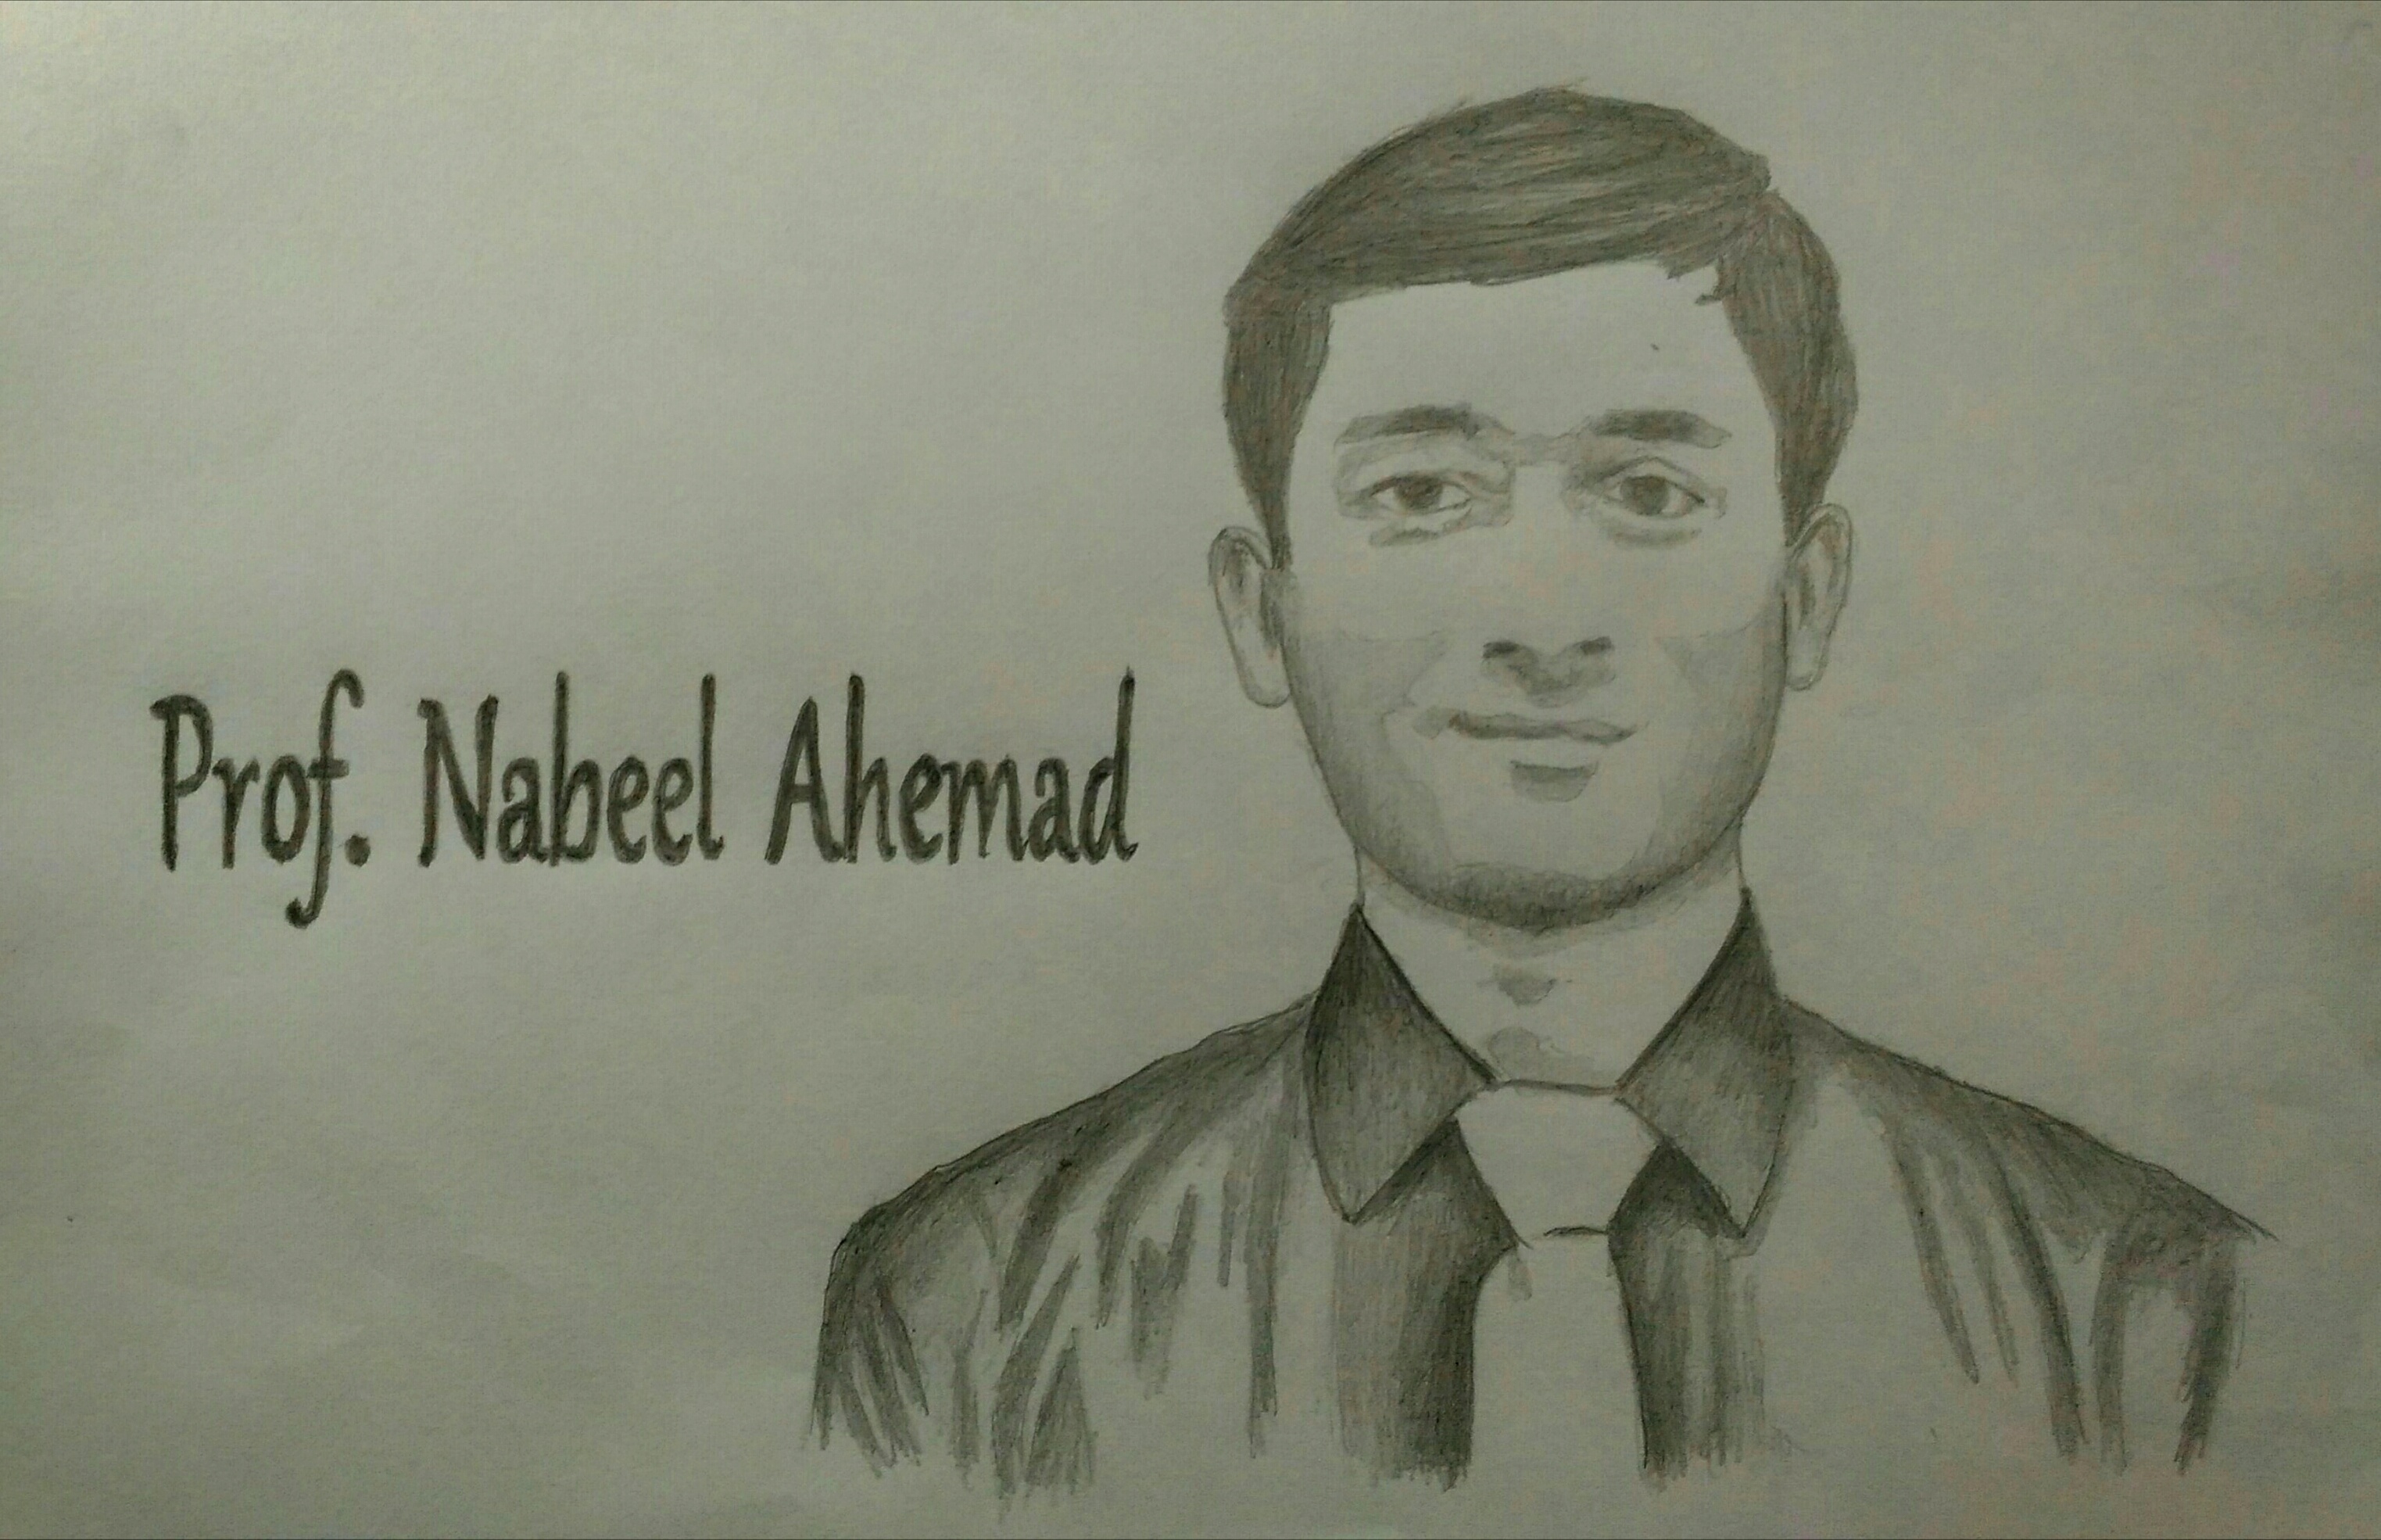 Prof. Nabeel Ahemad